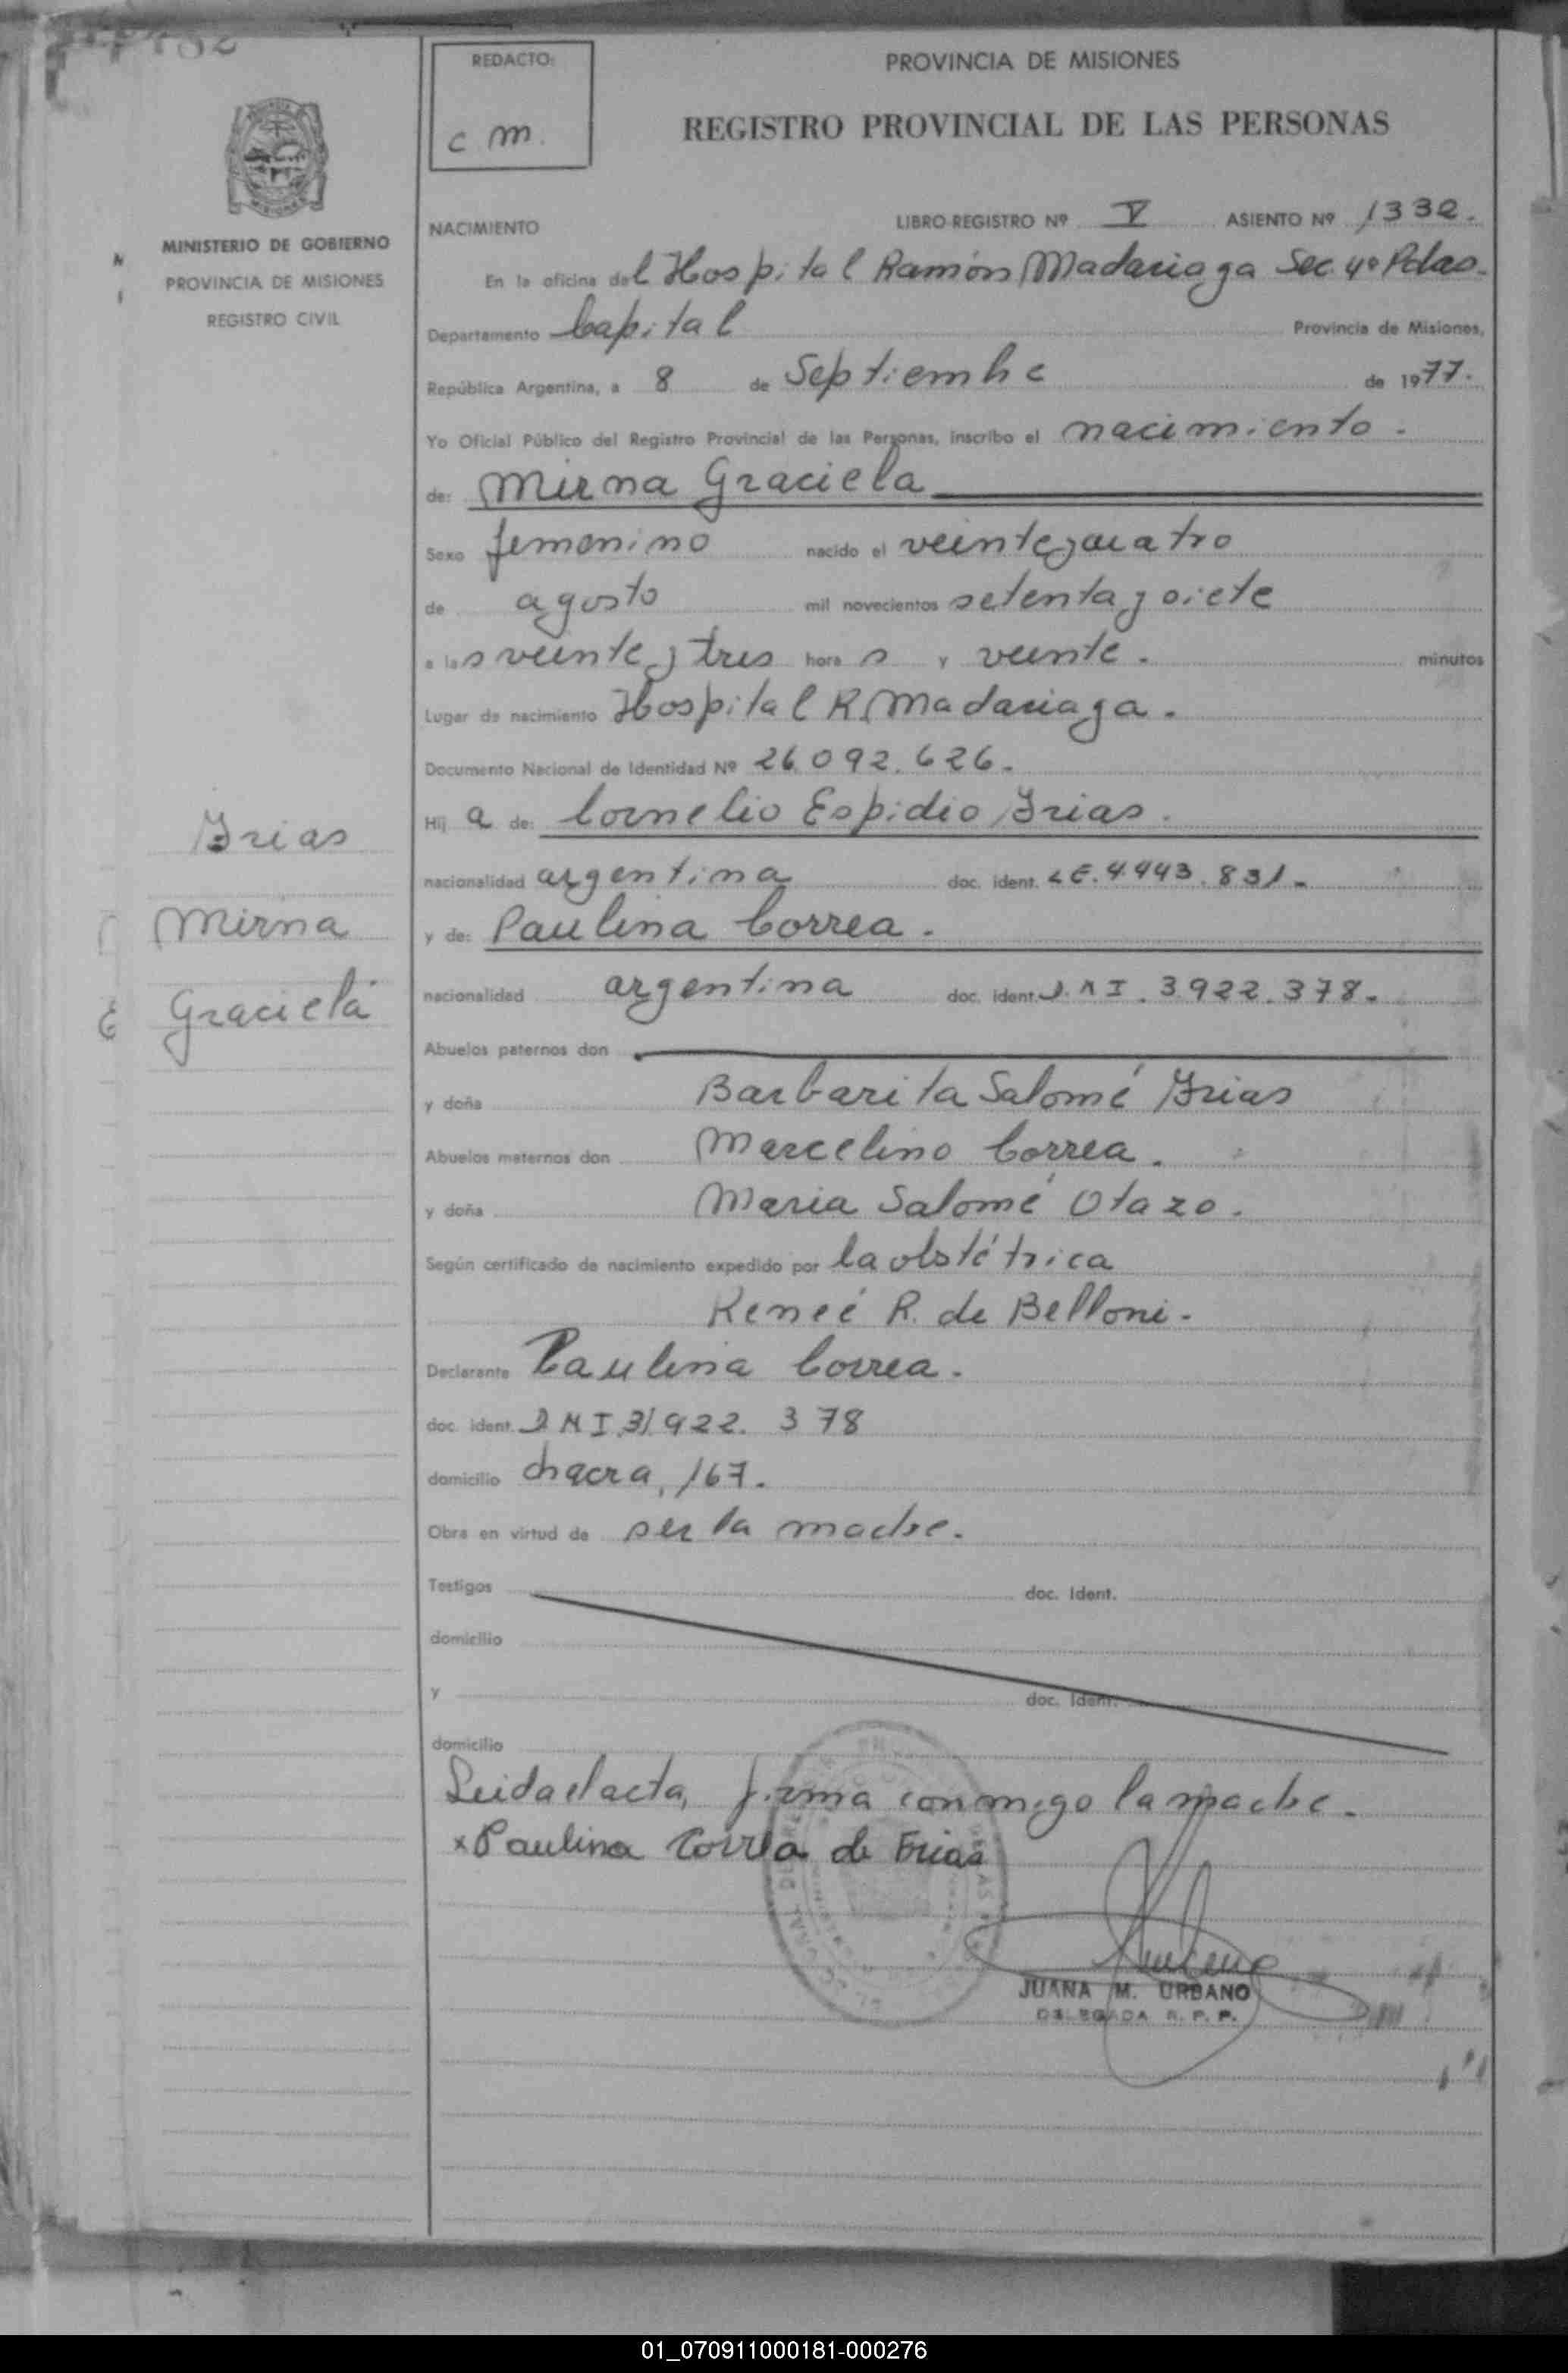 REDACTO:
c m.
PROVINCIA DE MISIONES
REGISTRO PROVINCIAL DE LAS PERSONAS
MINISTERIO DE GOBIERNO
PROVINCIA DE MISIONES
REGISTRO CIVIL
NACIMIENTO LIBRO-REGISTRO Nº V ASIENTO Nº 1332.
En la oficina del Hospital Ramón Madariaga Sec. 4º Pdas.
Departamento Capital Provincia de Misiones,
República Argentina, a 8 de Septiembre de 1977.
Yo Oficial Público del Registro Provincial de las Personas, inscribo el nacimiento.
de: Mirna Graciela
Sexo femenino nacido el veinteycuatro
de agosto mil novecientos setenta y siete
a las veinte y tres hora s y veinte. minutos
Lugar de nacimiento Hospital R. Madariaga.
Documento Nacional de Identidad Nº 26.092.626.
Hij a de: Cornelio Espidio Frias.
nacionalidad argentina doc. ident. LE. 4.943.831.
y de: Paulina Correa.
nacionalidad argentina doc. ident. D.N I. 3.922.378.
Frias
Mirna
Graciela
Abuelos paternos don
y doña Barbarita Salomé Frias
Abuelos maternos don Marcelino Correa.
y doña Maria Salomé Otazo.
Según certificado de nacimiento expedido por la obstétrica
Reneé R. de Belloni.
Declarante Paulina Correa.
doc. ident. D N I 3/922. 378
domicilio chacra, 167.
Obra en virtud de ser la madre.
Testigos doc. Ident.
domicilio
y doc. Ident.
domicilio
Leida el acta, firma conmigo la madre.
x Paulina Correa de Frias
JUANA M. URBANO
DELEGADA R. P. P.
01_070911000181-000276